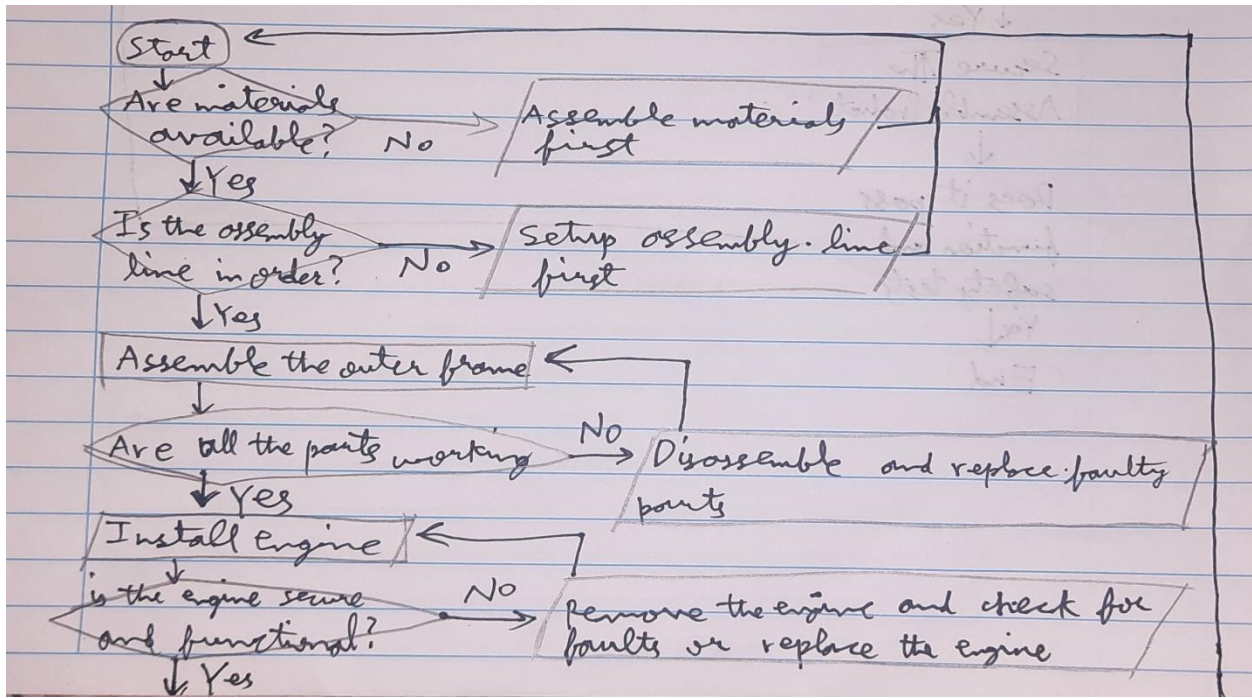 Start
Are materials
available?
No
Assemble materials
first
Yes
Is the assembly
line in order?
No
Setup assembly line
first
Yes
Assemble the outer frame
Are all the parts working
No
Disassemble and replace faulty
parts
Yes
Install engine
is the engine secure
and functional?
No
Remove the engine and check for
faults or replace the engine
Yes